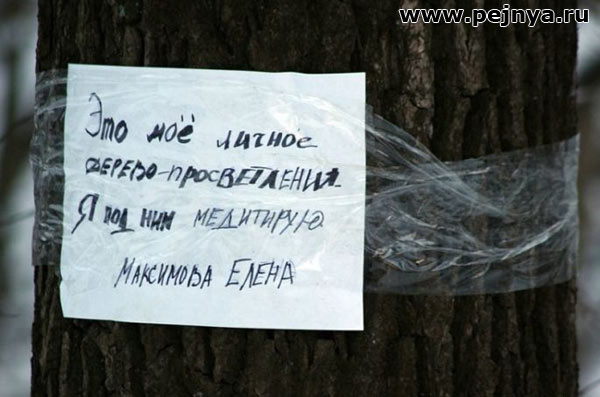 www.pejnya.ru
Это моё личное
дерево-просветления.
Я под ним медитирую
Максимова Елена